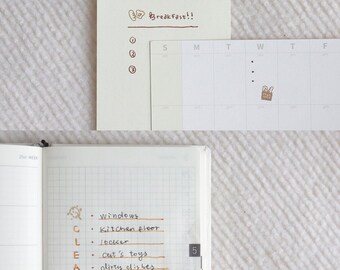 Breakfast!!
①
②
③
S M T W T F
C · windows
L · kitchen floor
E · locker
A · cat's toys
· dirty dishes
5